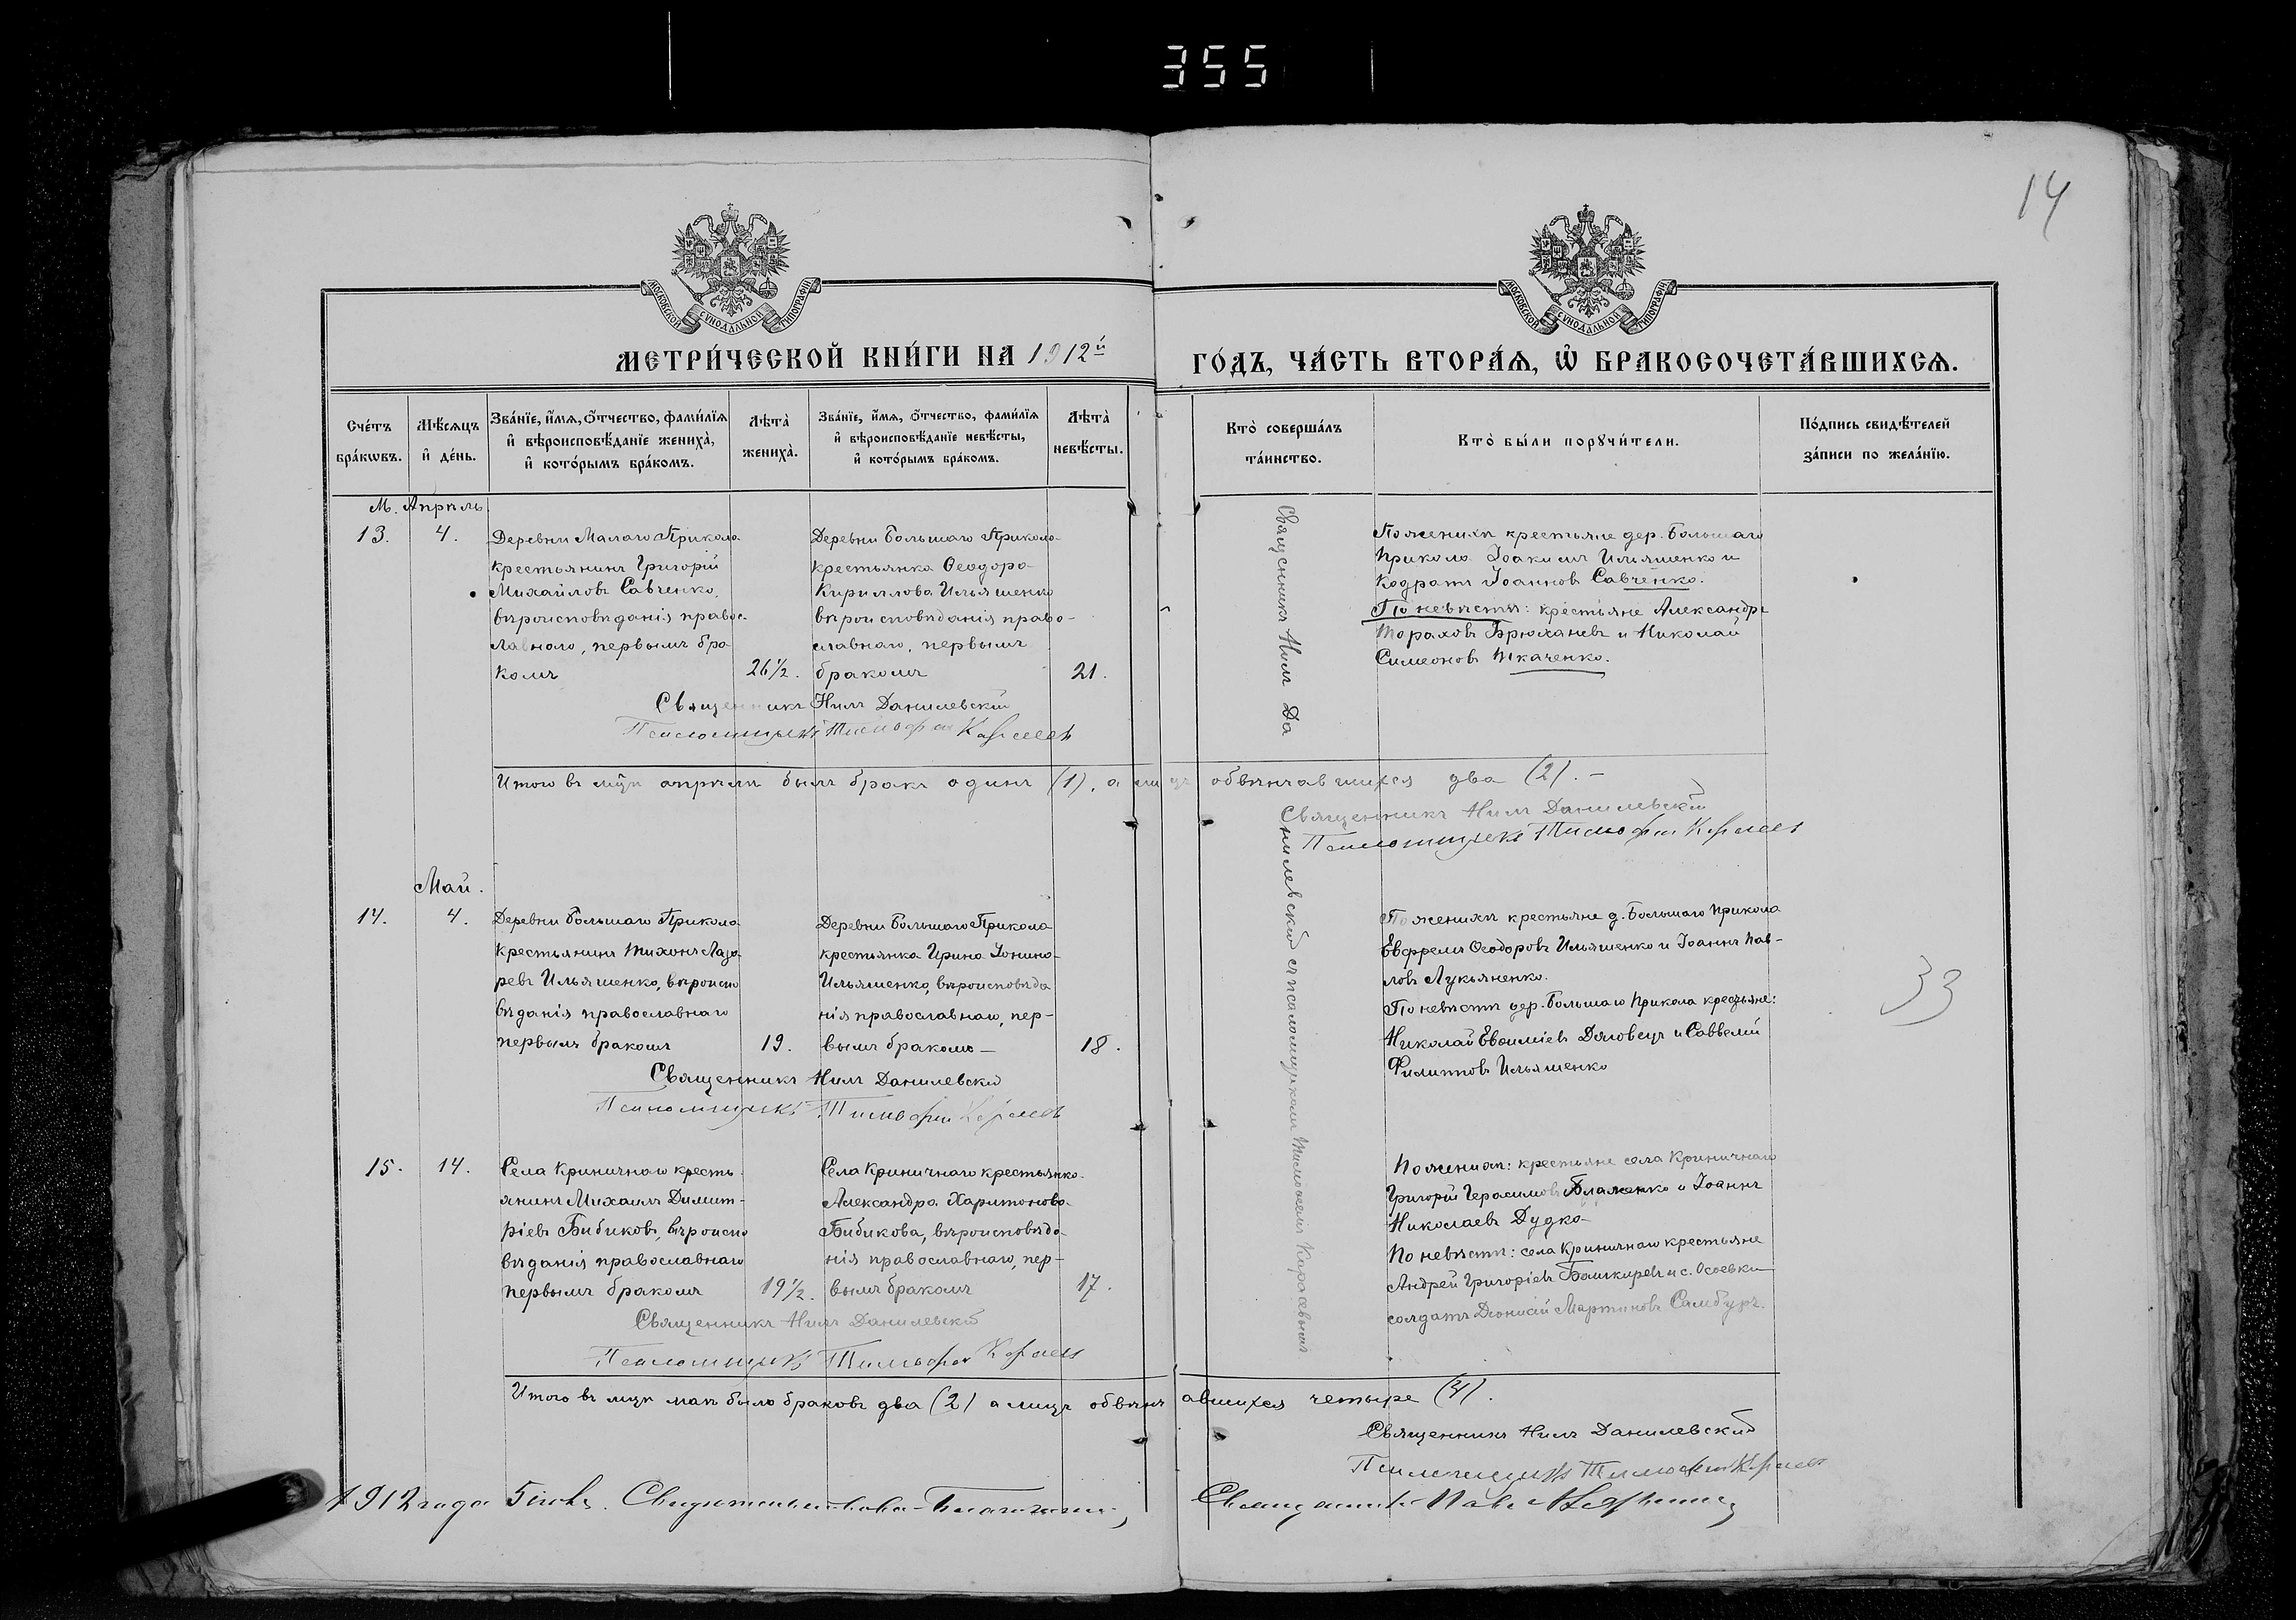 355
14
МОСКОВСКОЙ СУНОДАЛЬНОЙ ТИПОГРАФІИ
МОСКОВСКОЙ СУНОДАЛЬНОЙ ТИПОГРАФІИ
МЕТРИ́ЧЕСКОЙ КНИ́ГИ НА 1912й
ГО́ДЪ, ЧА́СТЬ ВТОРА́Я, Ѽ БРАКОСОЧЕТА́ВШИХСЯ.
Сче́тъ бра́кѡвъ.
Мѣ́сяцъ и҆ де́нь.
Зва́нїе, и҆́мя, ѻ҆́тчество, фами́лїя и҆ вѣроисповѣ́данїе жениха̀, и҆ кото́рымъ бра́комъ.
Лѣта̀ жениха̀.
Зва́нїе, и҆́мя, ѻ҆́тчество, фами́лїя и҆ вѣроисповѣ́данїе невѣ́сты, и҆ кото́рымъ бра́комъ.
Лѣта̀ невѣ́сты.
Кто̀ соверша́лъ та́инство.
Кто̀ бы́ли порꙋчи́тели.
По́дпись свидѣ́телей за́писи по жела́нїю.
М. Апрѣль.
13.
4.
Деревни Малаго Прикола
крестьянинъ Григорій
Михайловъ Савченко,
вѣроисповѣданія правос-
лавнаго, первымъ бра
комъ
26½.
Деревни Большаго Прикола
крестьянка Ѳеодора
Кириллова Ильяшенко
вѣроисповѣданія право-
славнаго, первымъ
бракомъ
21.
Священникъ Нилъ Данилевскій съ псаломщикомъ Тимоѳеемъ
По женихѣ крестьяне дер. Большаго
Прикола Іоакимъ Ильяшенко и
Кодратъ Іоанновъ Савченко.
По невѣстѣ: крестьяне Александръ
Тараховъ Брюханевъ и Николай
Симеоновъ Ткаченко.
Священникъ Нилъ Данилевскій
Псаломщикъ Тимофей
Итого въ м̃цѣ апрѣлѣ былъ бракъ одинъ (1), а лицъ обвѣнчавшихся два (2). –
Священникъ Нилъ Данилевскій
Псаломщикъ Тимофей
Май.
14.
4.
Деревни Большаго Прикола
крестьянинъ Тихонъ Лаза
ревъ Ильяшенко, вѣроиспо
вѣданія православнаго
первымъ бракомъ
19.
Деревни Большаго Прикола
крестьянка Ирина Іонина
Ильяшенко, вѣроисповѣда
нія православнаго, пер-
вымъ бракомъ –
18.
По женихѣ крестьяне д. Большаго Прикола
Евфремъ Ѳеодоровъ Ильяшенко и Іоаннъ Пав-
ловъ Лукьяненко.
По невѣстѣ дер. Большаго Прикола крестьяне:
Николай Евѳиміевъ и Саввелій
Филипповъ Ильяшенко
33
Священникъ Нилъ Данилевскій
Псаломщикъ Тимофей
15.
14.
Села Криничнаго кресть
янинъ Михаилъ Димит-
ріевъ Бибиковъ, вѣроиспо
вѣданія православнаго
первымъ бракомъ
19½.
Села Криничнаго крестьянка
Александра Харитонова
Бибикова, вѣроисповѣда-
нія православнаго, пер-
вымъ бракомъ
17.
По женихѣ: крестьяне села Криничнаго
Григорій Герасимовъ и Іоаннъ
Николаевъ Дудка
По невѣстѣ: села Криничнаго крестьяне
Андрей Григоріевъ Башкиревъ и с. Осоевки
солдатъ Діонисій Мартиновъ Самбуръ.
Священникъ Нилъ Данилевскій
Псаломщикъ Тимофей
Итого въ мцѣ маѣ было браковъ два (2) а лицъ обвѣнчавшихся четыре (4).
Священникъ Нилъ Данилевскій
Псаломщикъ Тимофей
1912 года 5